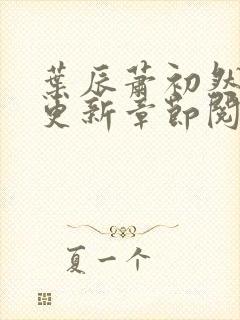 葉辰蕭初然
更新章節閱
夏一个